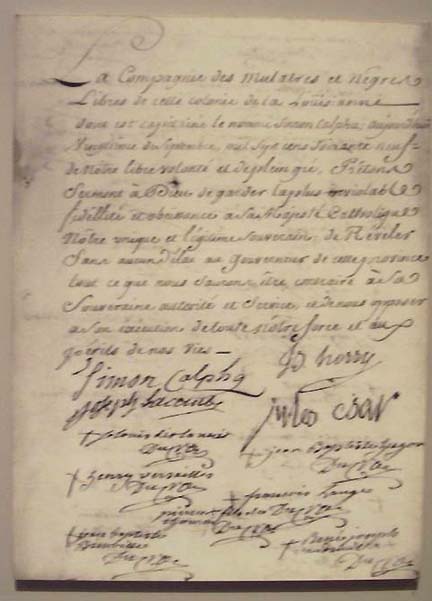 La Compagnie des Mulatres et Négres
Libres de cette colonie de la Loüisianne
dont est capitaine le nommé Simon Calpha, aujourd'hui
Vingtième du Septembre, mil Sept cens Soixante neuf
de Nôtre libre volonté et de plein gré, Prêtons
Serment à Dieu de garder la plus inviolable
fidellité et obeissance à Sa Majesté Catholique
Nôtre unique et légitime Souverain; de Réveler
Sans aucun délai au gouverneur de cette province
tout ce que nous Saurons être contraire à Sa
Souveraine autorité et Service, et de nous opposer
à Son éxécution de toute Nôtre force et aux
périls de nos vies
Simon Calpha
horry
Joseph Lacombe
Jules Cesar
Louis
Jean Baptiste hugon
henry Versailles
francois
pierre
thomas
jean baptiste